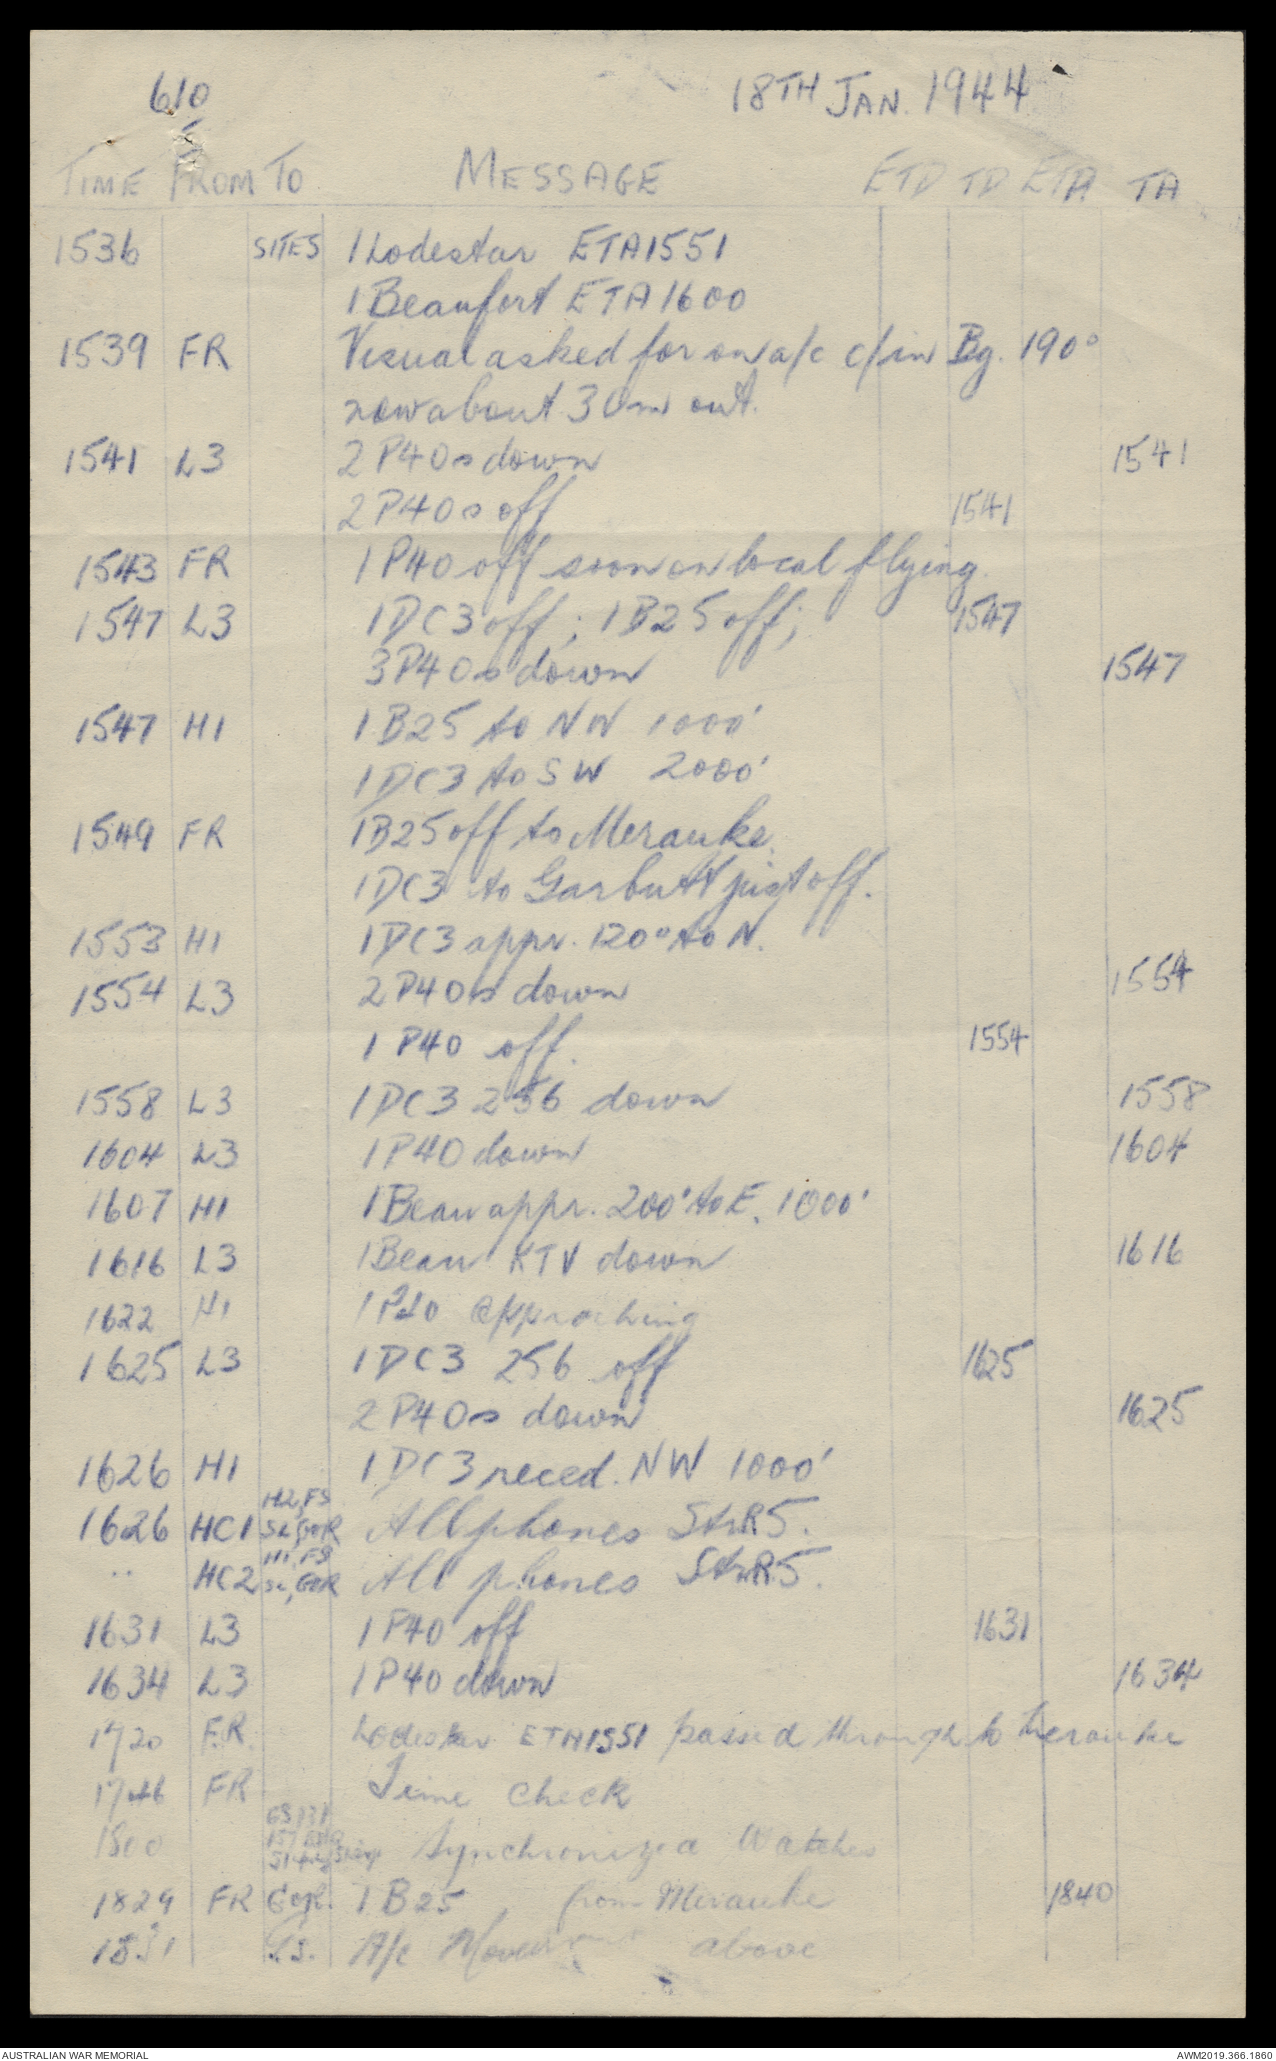 610
5
18TH JAN. 1944
TIME FROM TO MESSAGE ETD TD ETA TA
1536 SITES 1 Lodestar ETA 1551
1 Beaufort ETA 1600
1539 FR Visual asked for on a/c c/in Bg. 190°
now about 30m out.
1541 L3 2 P40s down 1541
2 P40s off 1541
1543 FR 1 P40 off soon on local flying.
1547 L3 1 DC3 off; 1 B25 off; 1547
3 P40s down 1547
1547 H1 1 B25 to NW 1000'
1 DC3 to SW 2000'
1549 FR 1 B25 off to Merauke.
1 DC3 to Garbutt just off.
1553 H1 1 DC3 appr. 120° to N.
1554 L3 2 P40s down 1554
1 P40 off. 1554
1558 L3 1 DC3 256 down 1558
1604 L3 1 P40 down 1604
1607 H1 1 Beau appr. 200° to E. 1000'
1616 L3 1 Beau KTV down 1616
1622 H1 1 P40 approching
1625 L3 1 DC3 256 off 1625
2 P40s down 1625
1626 H1 1 DC3 reced. NW 1000'
1626 HC1 H2, FS SL, GOR All phones StrR5.
" HC2 H1, FS SL, GOR All phones StrR5.
1631 L3 1 P40 off 1631
1634 L3 1 P40 down 1634
1720 F.R. Lodestar ETA 1551 passed through to Merauke
1746 FR Time Check
1800 Synchronized Watches
1829 FR Gor. 1 B25 from Merauke 1840
1831 A/c Movement above
AUSTRALIAN WAR MEMORIAL AWM2019.366.1860